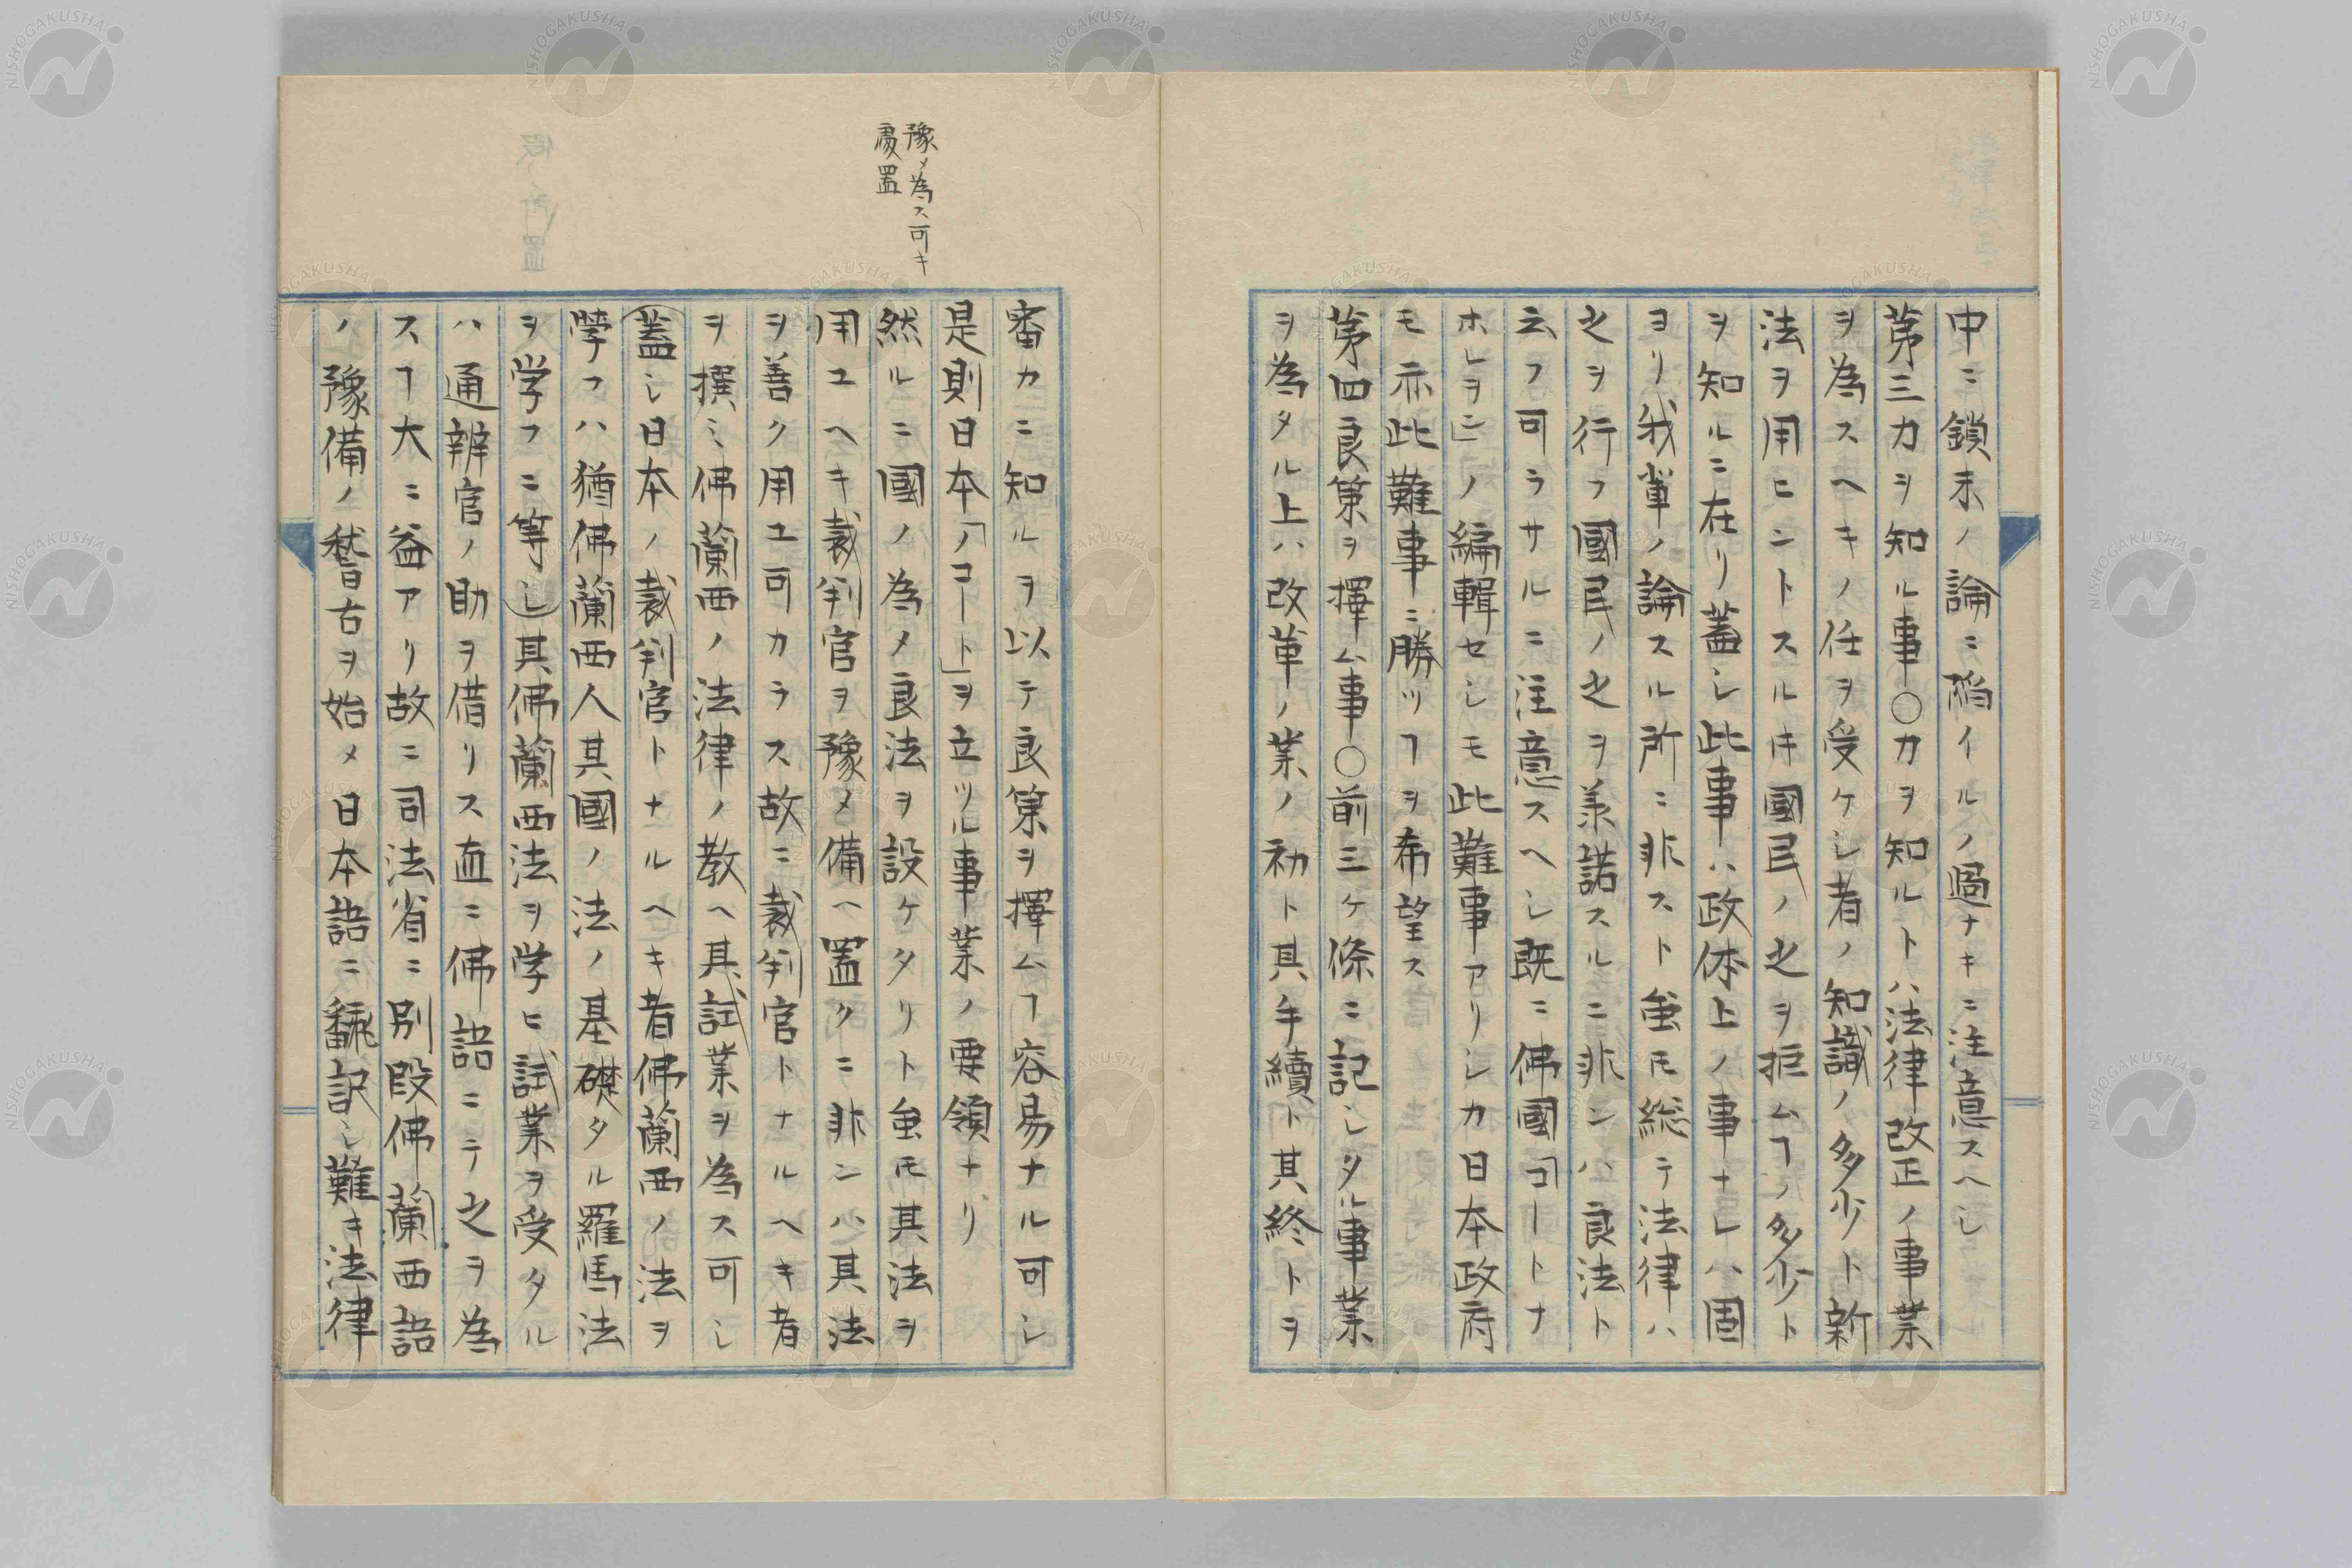 中ニ鎖末ノ論ニ陥イルノ過ナキニ注意スヘし
第三力ヲ知ル事〇力ヲ知ルトハ法律改正ノ事業
ヲ為スヘキノ任ヲ受ケし者ノ知識ノ多少ト新
法ヲ用ヒントスルキ國民ノ之ヲ拒ムヿノ多少ト
ヲ知ルニ在リ蓋し此事ハ政体上ノ事ナレハ固
ヨリ我軰ノ論スル所ニ非スト虽モ総テ法律ハ
之ヲ行フ國民ノ之ヲ羕諾スルニ非ンハ良法ト
云フ可ラサルニ注意スヘし既ニ佛國「コートナ
ホレヲン」ノ編輯セしモ此難事アリしカ日本政府
モ亦此難事ニ勝ツヿヲ希望ス
第四良策ヲ擇ム事〇前三ケ條ニ記しタル事業
ヲ為タル上ハ改革ノ業ノ初ト其手續ト其終トヲ
豫メ為ス可キ
處置
審カニ知ルヲ以テ良策ヲ擇ムヿ容易ナル可し
是則日本ノ「コート」ヲ立ツル事業ノ要領ナリ
然ルニ國ノ為メ良法ヲ設ケタリト虽モ其法ヲ
用ユヘキ裁判官ヲ豫メ備ヘ置クニ非ンハ其法
ヲ善ク用ユ可カラス故ニ裁判官トナルヘキ者
ヲ撰ミ佛蘭西ノ法律ノ教ヘ其試業ヲ為ス可し
(蓋し日本ノ裁判官トナルヘキ者佛蘭西ノ法ヲ
學フハ猶佛蘭西人其國ノ法ノ基礎タル羅馬法
ヲ学フニ等し)其佛蘭西法ヲ学ヒ試業ヲ受タル
ハ通辨官ノ助ヲ借リス直ニ佛語ニテ之ヲ為
スヿ大ニ益アリ故ニ司法省ニ別段佛蘭西語
ノ豫備ノ嵇古ヲ始メ日本語ニ飜訳し難キ法律